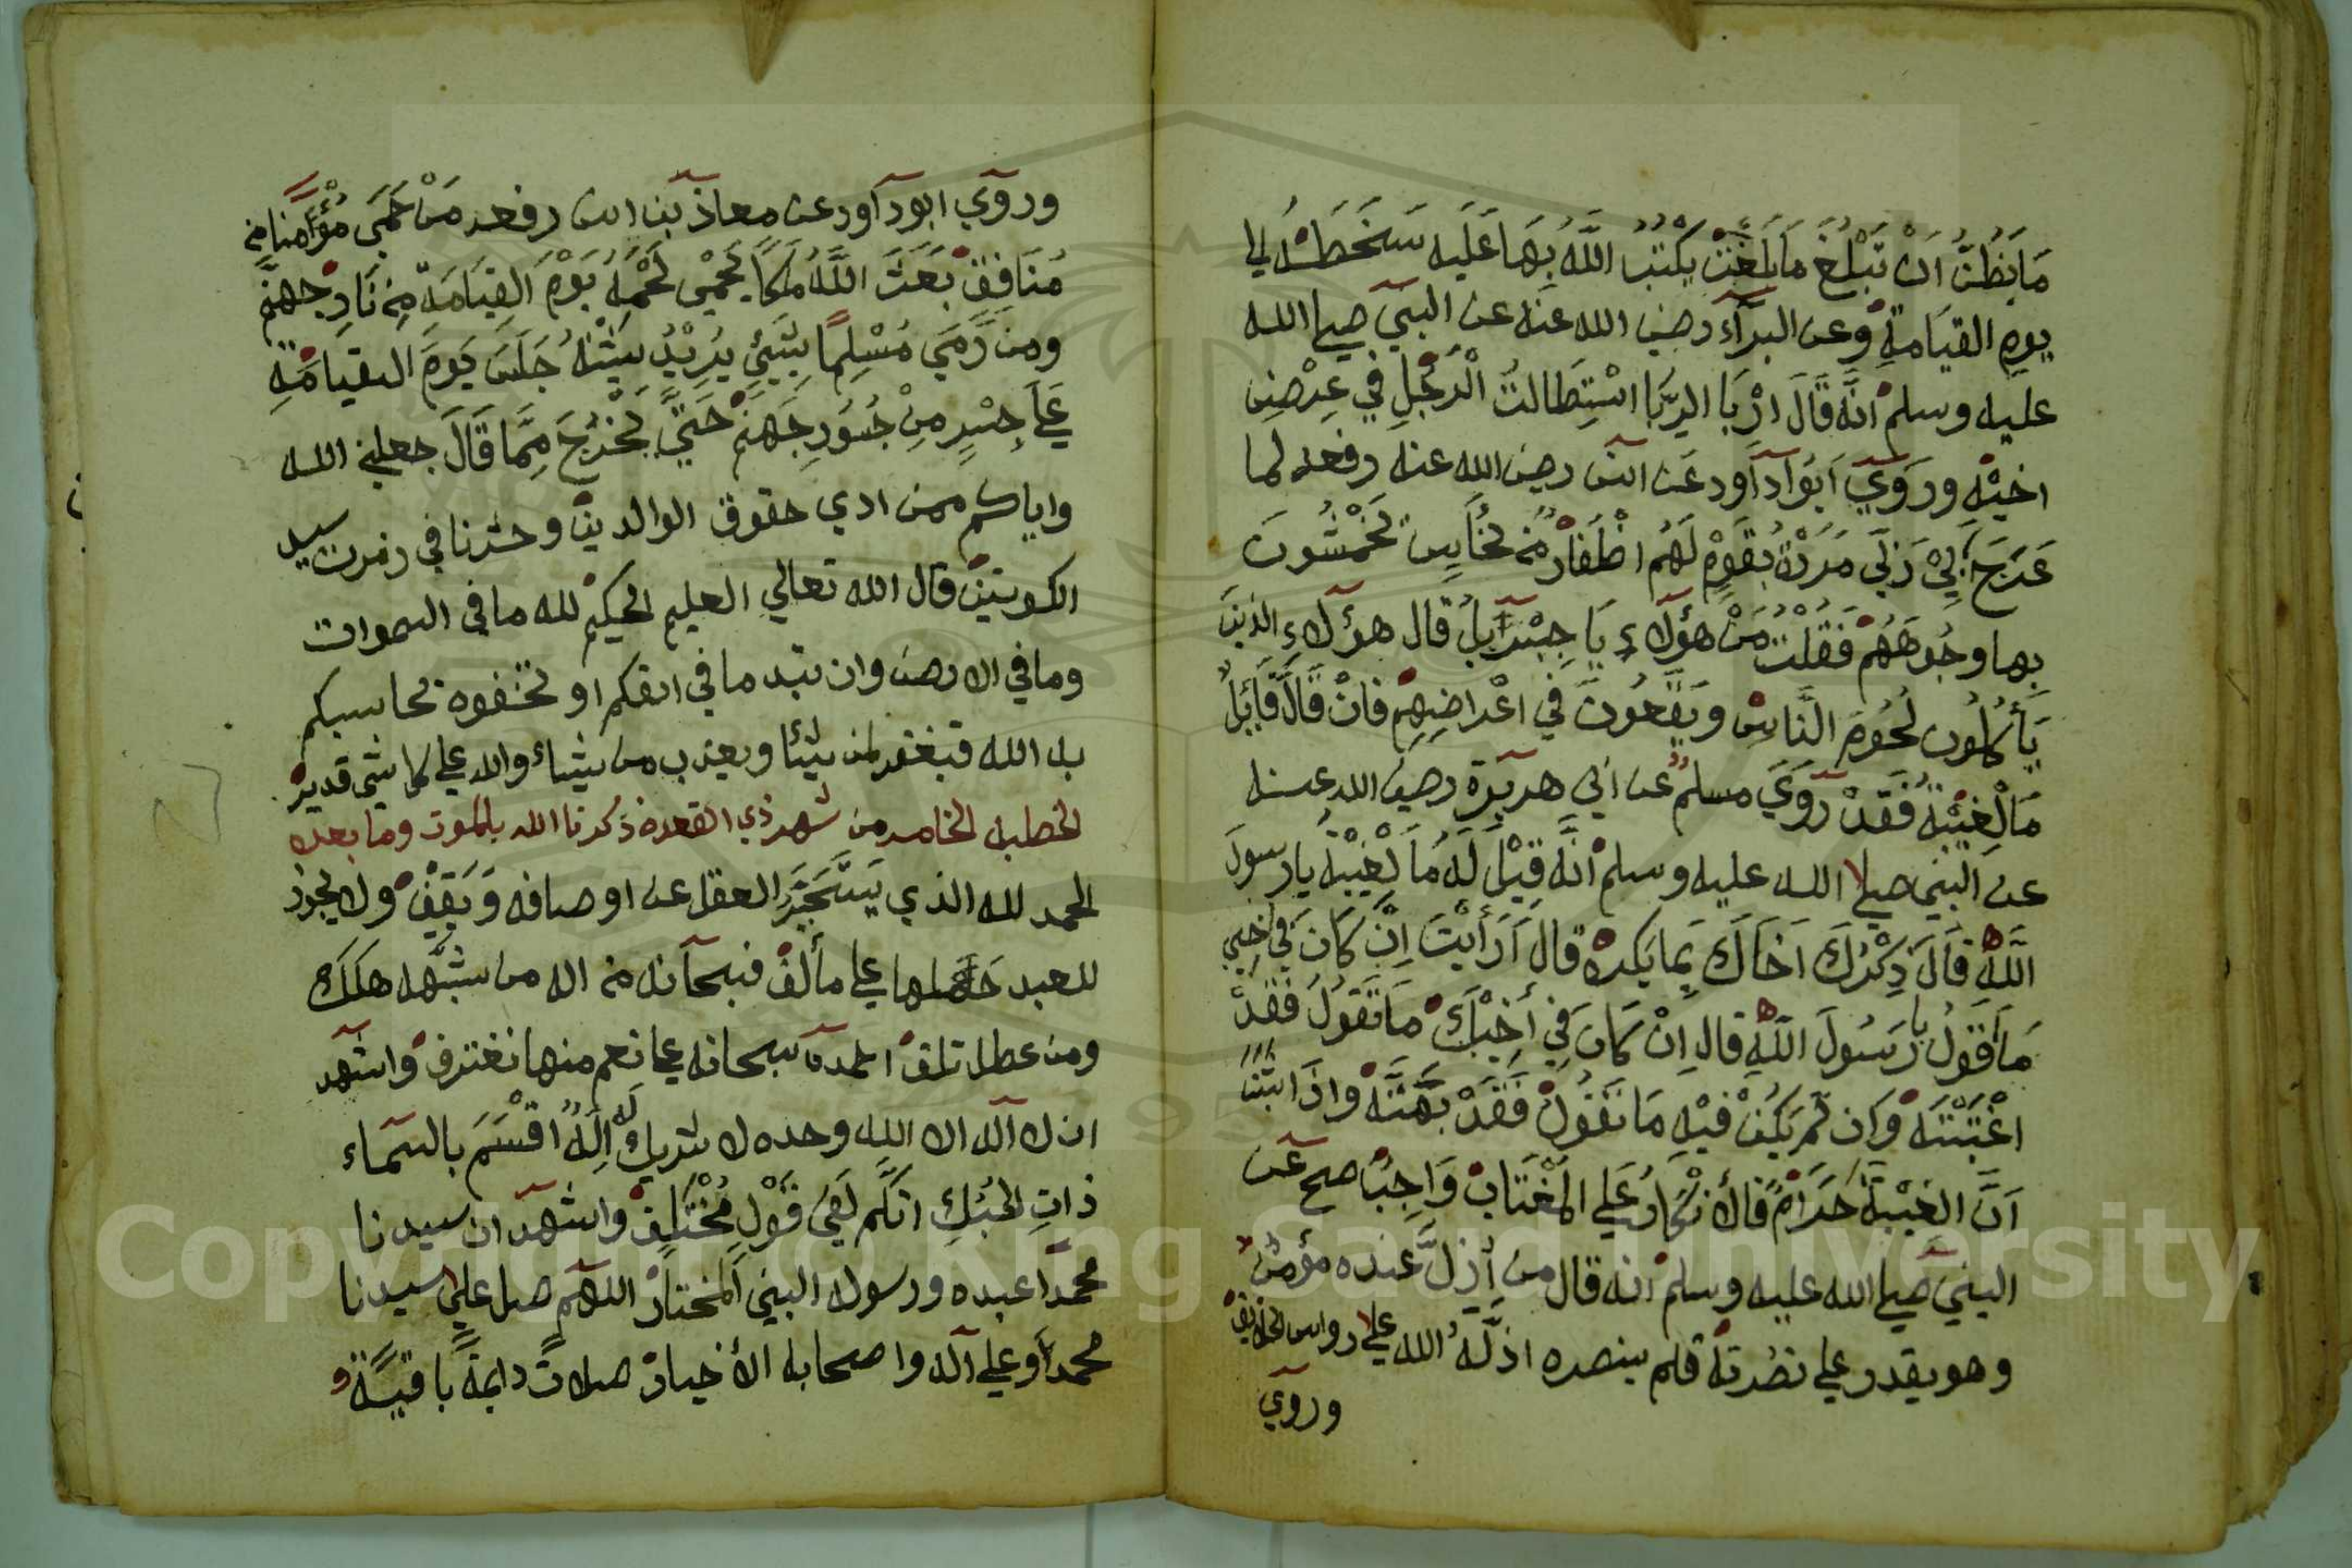 مَا يَظُنُّ اَنْ تَبْلُغَ مَا بَلَغَتْ يَكْتُبُ اللَّهُ بِهَا عَلَيه سَخَطَهُ الي
يومِ القيَامةِ وعن البرآء رضي الله عنه عن النبي صلي الله
عليه وسلم انَّه قَالَ ارْبَا الرِّبَا اسْتِطَالتُ الْرَّجُلِ في عِرْضِ
اخيْهِ ورَوَي اَبُوادآاود عَن انس رضي الله عنه رفعه لما
عَرَجَ بِيْ رَبِّي مَرَرْتُ بِقَوْمٍ لَهُم اظْفَارٌ مِنْ نُحَاسٍ يَخْمُشُونَ
بها وجُوهَهُمْ فَقُلْتُ مَنْ هؤلآء يَا جِبْرآيلُ قال هؤلآء الذينَ
يَأْكُلُون لُحُومَ النَّاسِ ويَقَعُونَ في اعْراضِهِمْ فانْ قَالَ قَايِلُ
مَالْغِيْبَةُ فَقَدْ رَوَي مسلم عن ابي هريرة رضي الله عنه
عن النبي صلي الله عليه وسلم انَّه قِيْلَ لَهُ مَا لْغِيْبَةُ يا رسولَ
اللَّهِ قَالَ ذِكْرُكَ اَخَاكَ بِمَا يَكرهُ قال اَرَأيْتَ اِنْ كَانَ في اَخِي
مَا اَقُولُ يا رَسُولَ اللَّهِ قال اِنْ كَانَ فِي اَخِيْكَ مَا تَقُولُ فَقَدْ
اغْتَبْتَهُ وَان لَّم يَكُنْ فيْهِ مَا تَقُولُ فَقَدْ بَهَتَّهُ واذَا اثبتنا
اَنَّ الغِيْبَةَ حَرَامٌ فالأنْكَارُ عَلي المُغْتَابْ وَاجِبٌ صح عَن
النبي صلي الله عليه وسلم انه قال من أذِلَّ عنده مؤمنٌ
وهو يقدر علي نصْرتهُ فلم ينصره اذلَّهُ الله علي رواس الخلايق
وروي
وروي ابو دآاود عن معاذ بن انس رفعه مَنْ حَمَي مُؤْمنًا مِن
مُنَافِقٍ بَعَثَ اللَّهُ مَلَكًا يَحْمِي لَحْمَهُ يَوْمَ القِيَامَةِ مِن نَارِ جهنَّم
ومن رَّمَي مُسْلِمًا بِشَيْئٍ يُرِيْدُ شَيْنَهُ جَلَسَ يَومَ القيَامَةِ
عَلَي جِسْرٍ مِنْ جُسُورِ جَهَنَّم حَتَّي يَخْرُجَ مِمَّا قَالَ جعلني الله
واياكم ممن ادي حقوق الوالدين وحشرنا في زمرت سيد
الكونين قال الله تعالي العليم الحكيم لله ما في السموات
وما في الارض وان تبد ما في انفكم او تخفوه يحاسبكم
به الله فيغفر لمن يشا ويعذب من يشاء والله علي كل شي قدير
الخطبه الخامسه من شهر ذي القعده ذكرنا الله بالموت وما بعده
الحمد لله الذي يَتَحَيَّرَ العقل عن اوصافه وَيَقِفْ ولا يجوز
للعبد حملها علي ما ألف فسبحآنه من اله من شبَّهه هلك
ومن عطله تلف احمده سبحانه علي نعم منها نغترف واشهد
ان لا آله الا الله وحده لا شريك لَه اِلَهٌ اقْسَمَ بالسمآء
ذاتِ الحُبُكِ انكم لَفِي قَوْلٍ مُخْتَلِفْ واشهد ان سيدنا
محمدًا عبده ورسوله النبي المختار اللهم صل علي سيدنا
محمد وعلي آله واصحابه الأخيار صلاتً دايمةً باقيةً و
Copyright © King Saud University